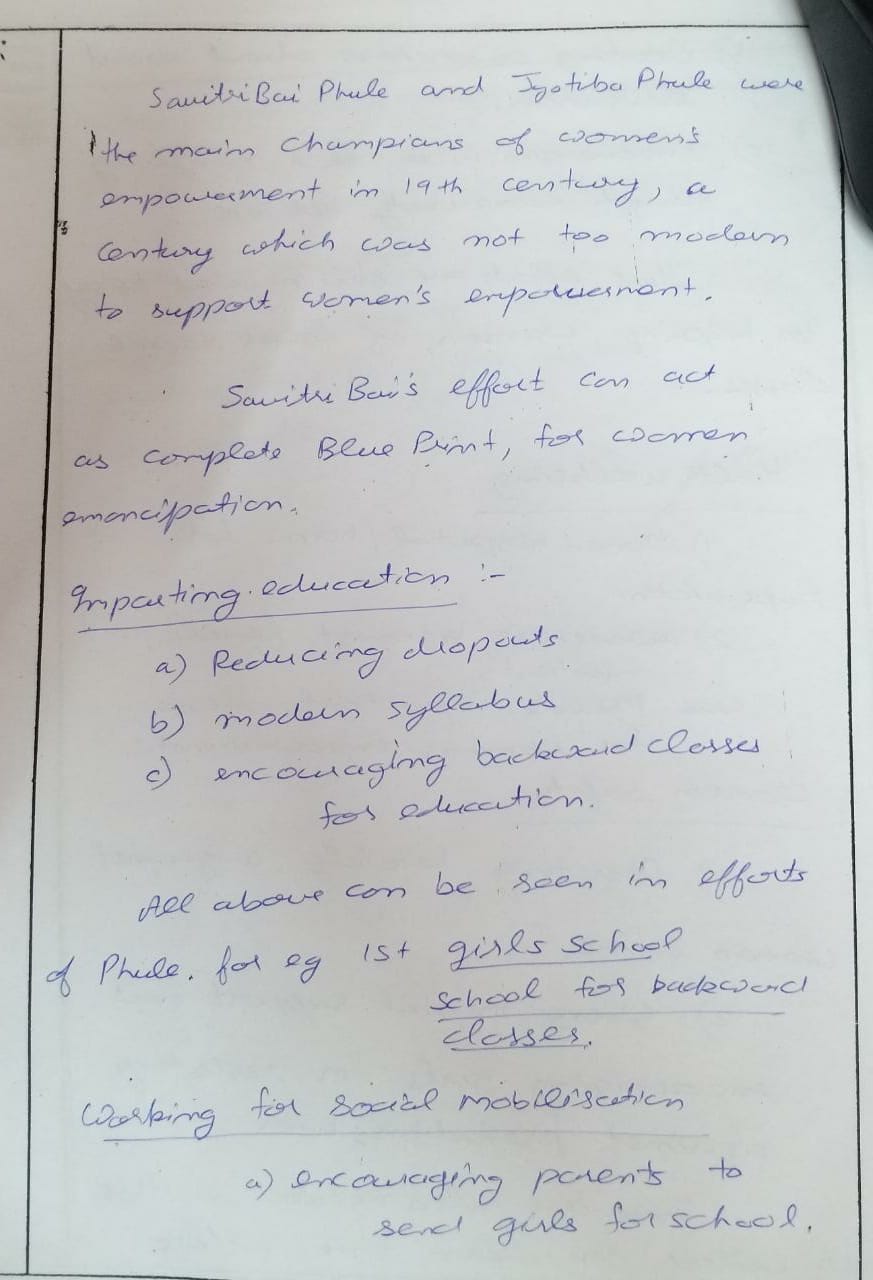 Savitri Bai Phule and Jyotiba Phule were
the main champians of women's
empowerment in 19th century, a
century which was not too modern
to support women's empowerment.
Savitri Bai's effort can act
as complete Blue Print, for women
emancipation.
Imparting education :-
a) Reducing dropouts
b) modern syllabus
c) encouraging backward classes
for education.
All above can be seen in efforts
of Phule. for eg 1st girls school
school for backward
classes.
Working for social mobilisation
a) encouraging parents to
send girls for school.